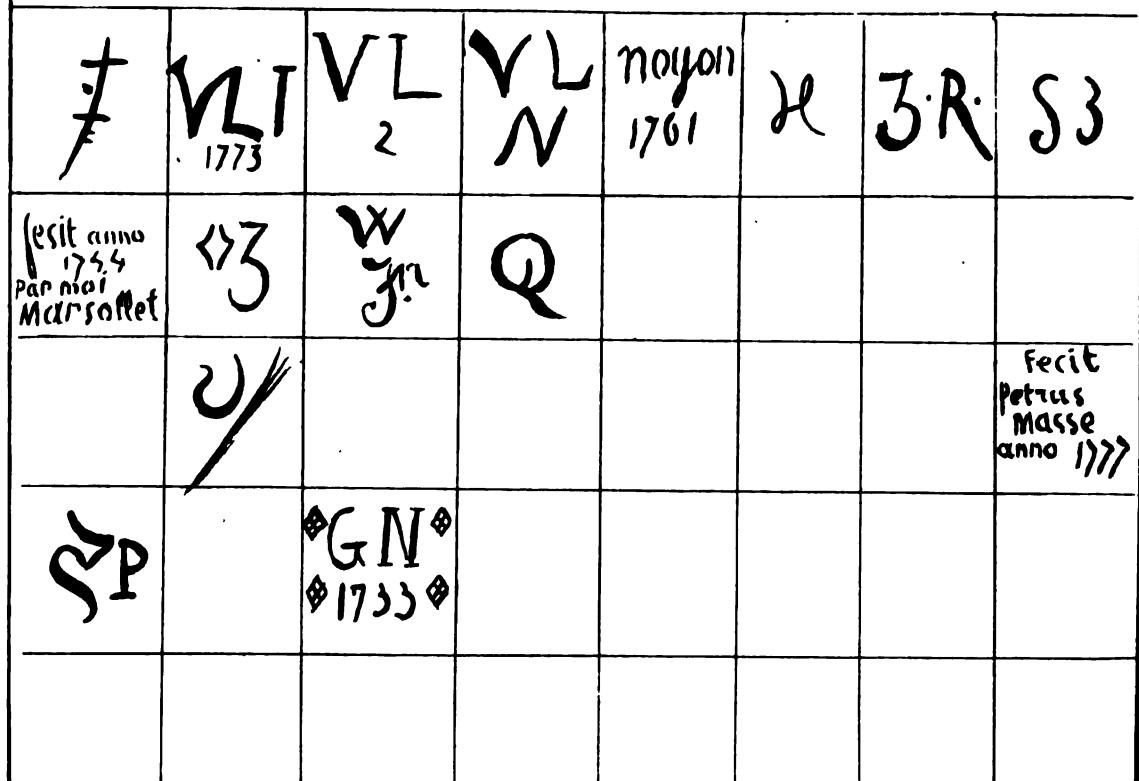 VLI
1773
VL
2
VL
N
noyon
1761
H
3·R·
S 3
fesit anno
1744
par moi
Marsollet
◊3
W
Jn
Q
Fecit
petrus
Masse
anno 1777
P
GN
1733